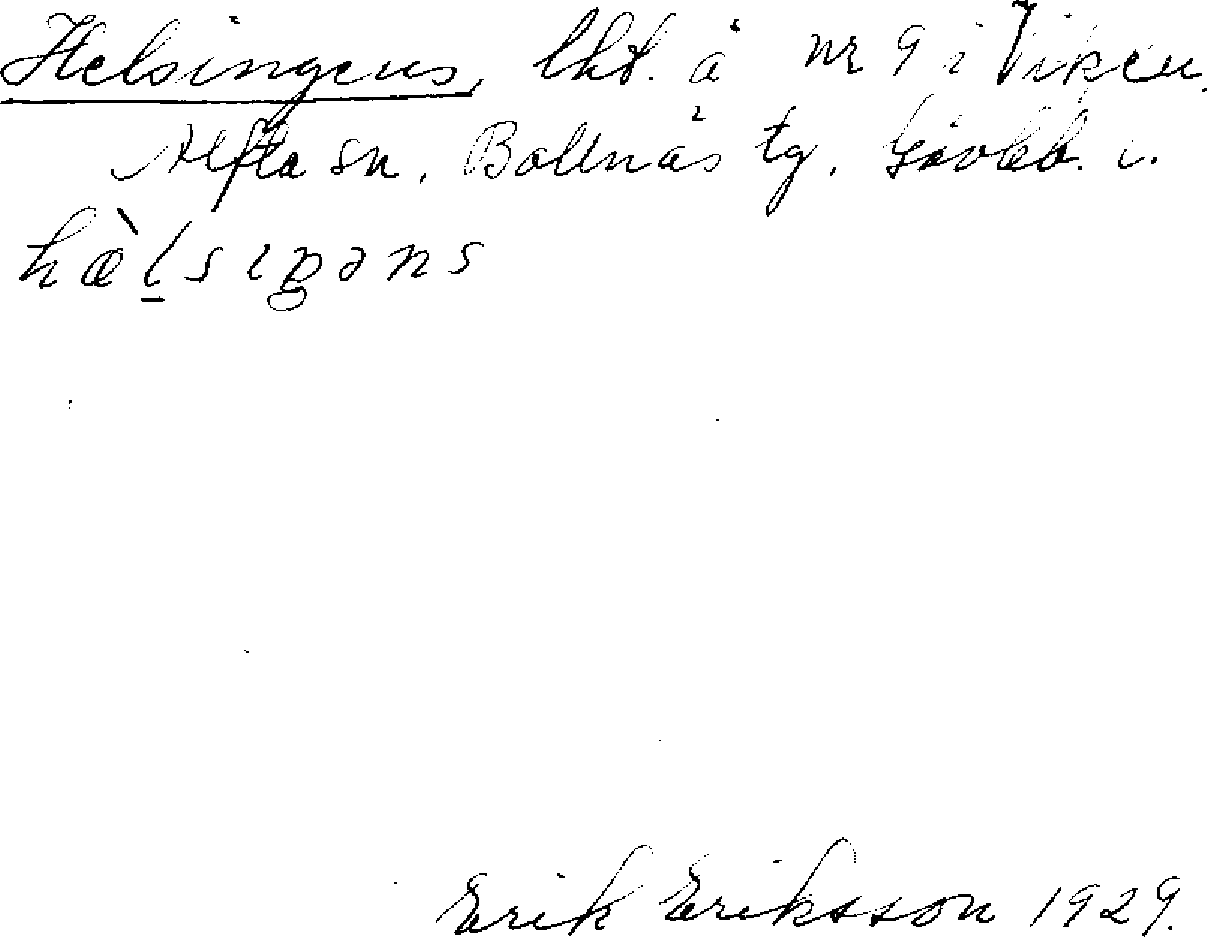 Helsingens, lht. å nr 9 i Viken.
Alfta sn, Bollnäs tg, Gävleb. l.
hæ̀l̠sıŋəns
Erik Eriksson 1929.